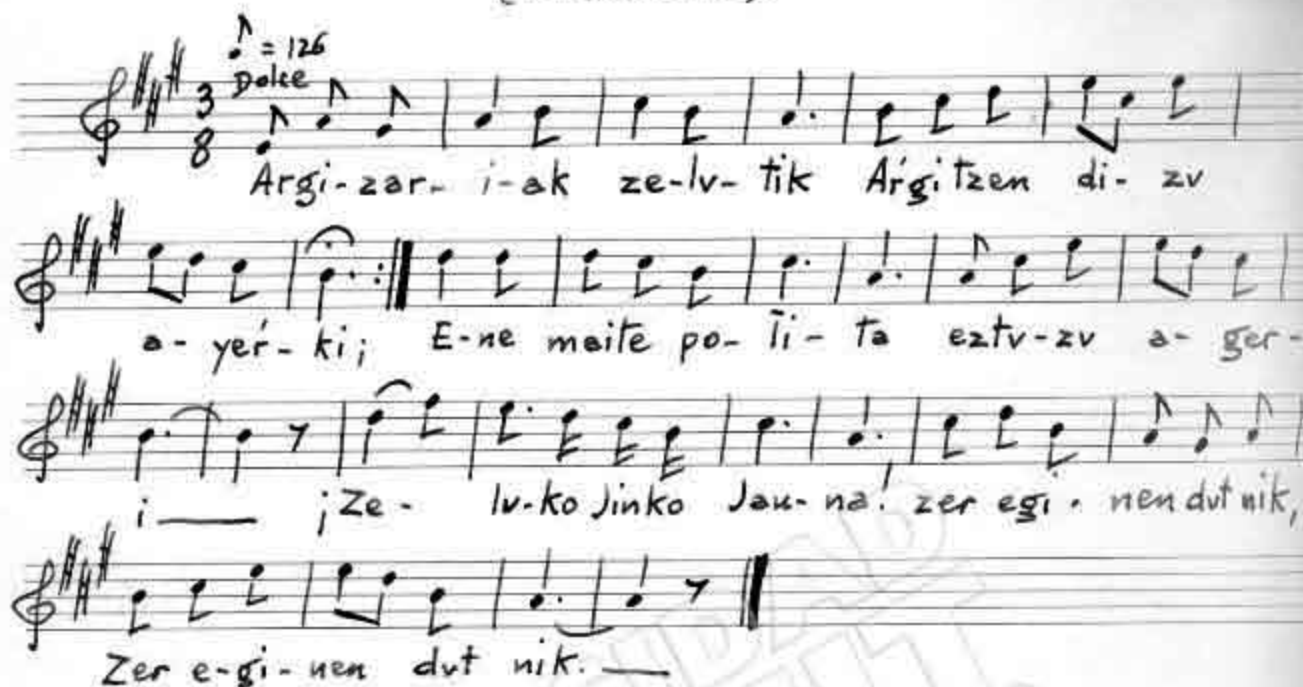 ♪ = 126
Dolce
3
8
Argi-zar- i-ak ze-lu-tik Árgitzen di- zu
a- yér- ki; E-ne maite po- li- ta eztu-zu a- ger-
i ¡Ze- lu-ko Jinko Jau- na! zer egi- nen dut nik,
Zer e-gi- nen dut nik.